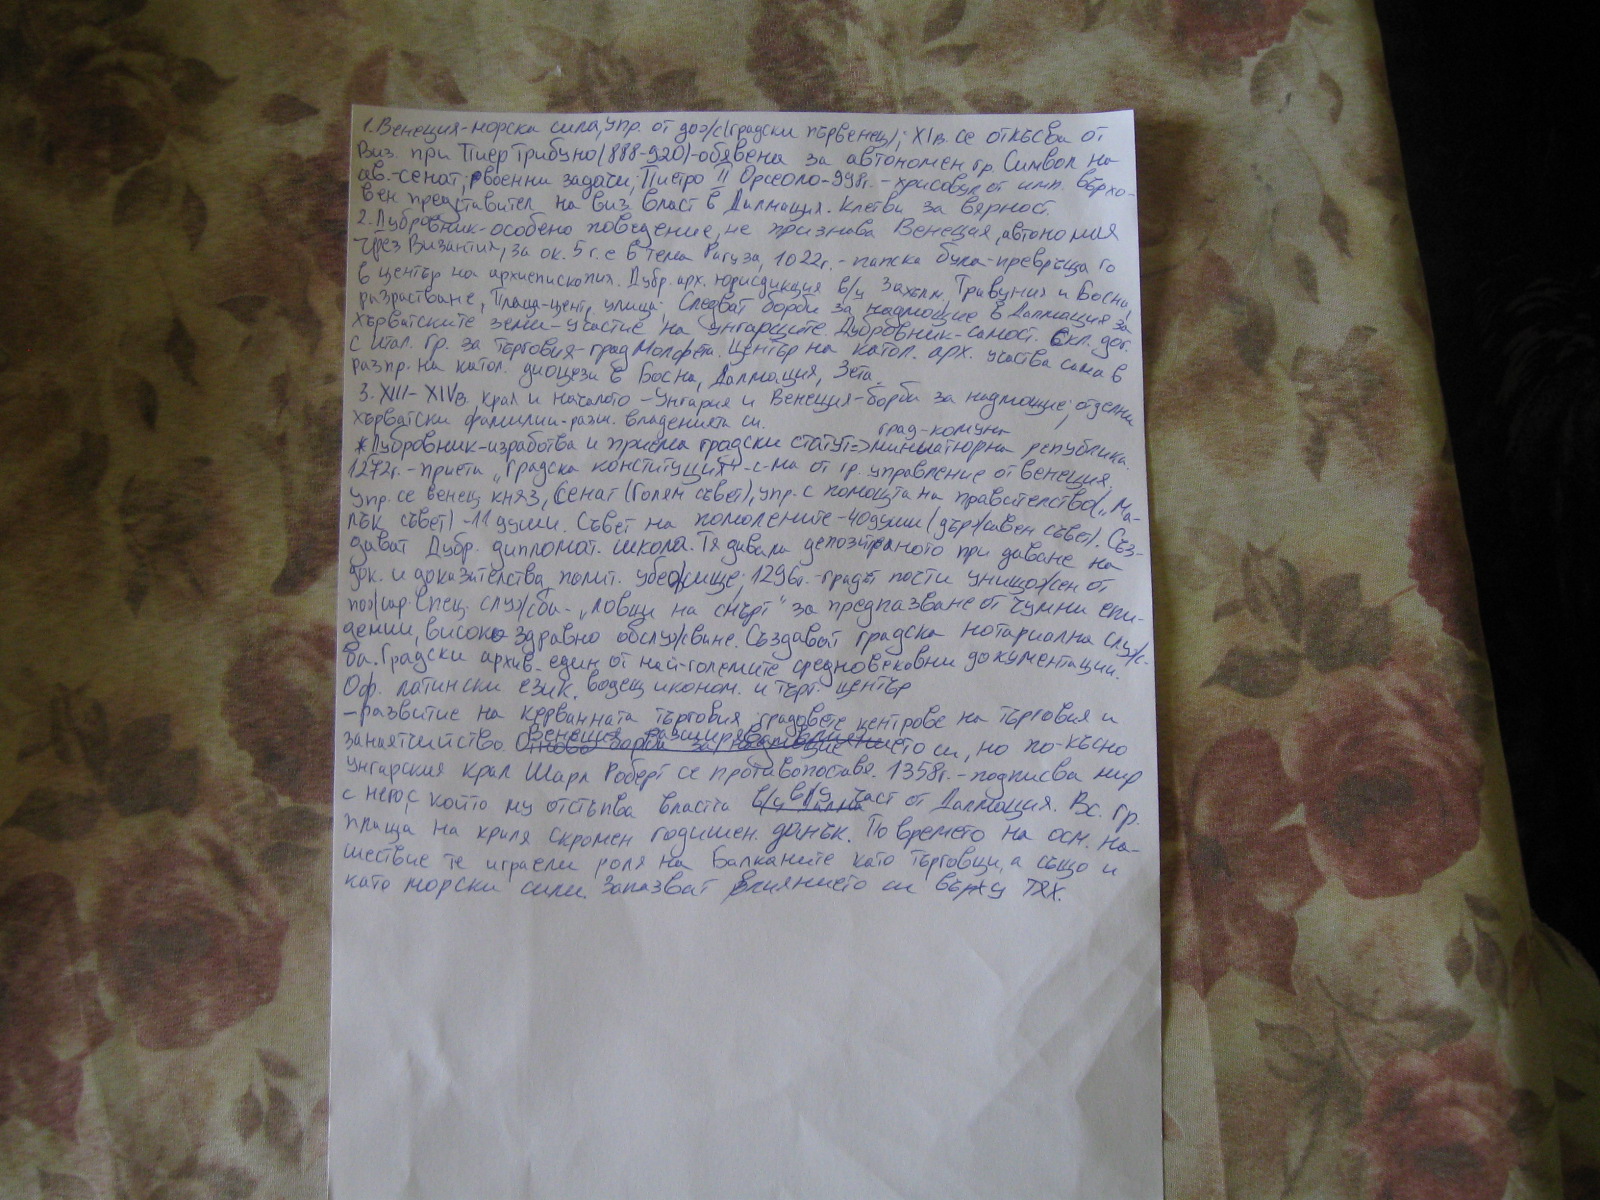 1. Венеция-морска сила, упр. от дож(градски първенец); XIв. се откъсва от
Виз. при Пиер Трибуно(888-920)-обявена за автономен гр. Символ на
ав.-сенат; военни задачи; Пиетро II Орсеоло-998г.-хрисовул от имп. върхо-
вен представител на виз власт в Далмация. Клетви за вярност.
2. Дубровник-особено поведение, не признава Венеция, автономия
чрез Византия, за ок. 5 г. е в тема Рагуза, 1022г.-папска була-превръща го
в център на архиепископия. Дубр. арх. юрисдикция в/у Захълм, Травуния и Босна,
разрастване, Плаца-цент. улица; Следват борби за надмощие в Далмация за
хърватските земи-участие на унгарците. Дубровник-самост. Скл. дог.
с итал. гр. за търговия-град Молфета. Център на катол. арх. участва сама в
разпр. на катол. диоцези в Босна, Далмация, Зета.
3. XIII-XIVв. края и началото -Унгария и Венеция-борби за надмощие; отделни
хърватски фамилии-разш. владенията си.
град-комуна
*Дубровник-изработва и приема градски статут=>миниатюрна република.
1272г.-приета „Градска конституция"-с-ма от гр. управление от Венеция.
Упр. се венец. княз, Сенат (Голям съвет), упр. с помощта на правителство(„Ма-
лък съвет)-11 души. Съвет на помолените-40души (държавен съвет). Съз-
дават Дубр. дипломат. школа. Тя давала депозираното при даване на
док. и доказателства, полит. убежище; 1296г.-градът почти унищожен от
пожар. Спец. служба-„ловци на смърт" за предпазване от чумни епи-
демии, високо здравно обслужване. Създават градска нотариална служ-
ба. Градски архив-един от най-големите средновековни документации.
Оф. латински език, водещ иконом. и търг. център
-развитие на керванната търговия градовете центрове на търговия и
Венеция разширява влиянието си, но по-късно
занаятчийство. Отново борби за надмощие
унгарския крал Шарл Роберт се противопоставя. 1358г.-подписва мир
с него, с който му отстъпва властта в/у част от Далмация. Вс. гр.
плаща на краля скромен годишен данък. По времето на осм. на-
шествие те играели роля на Балканите като търговци, а също и
като морски сили. Запазват влиянието си върху тях.